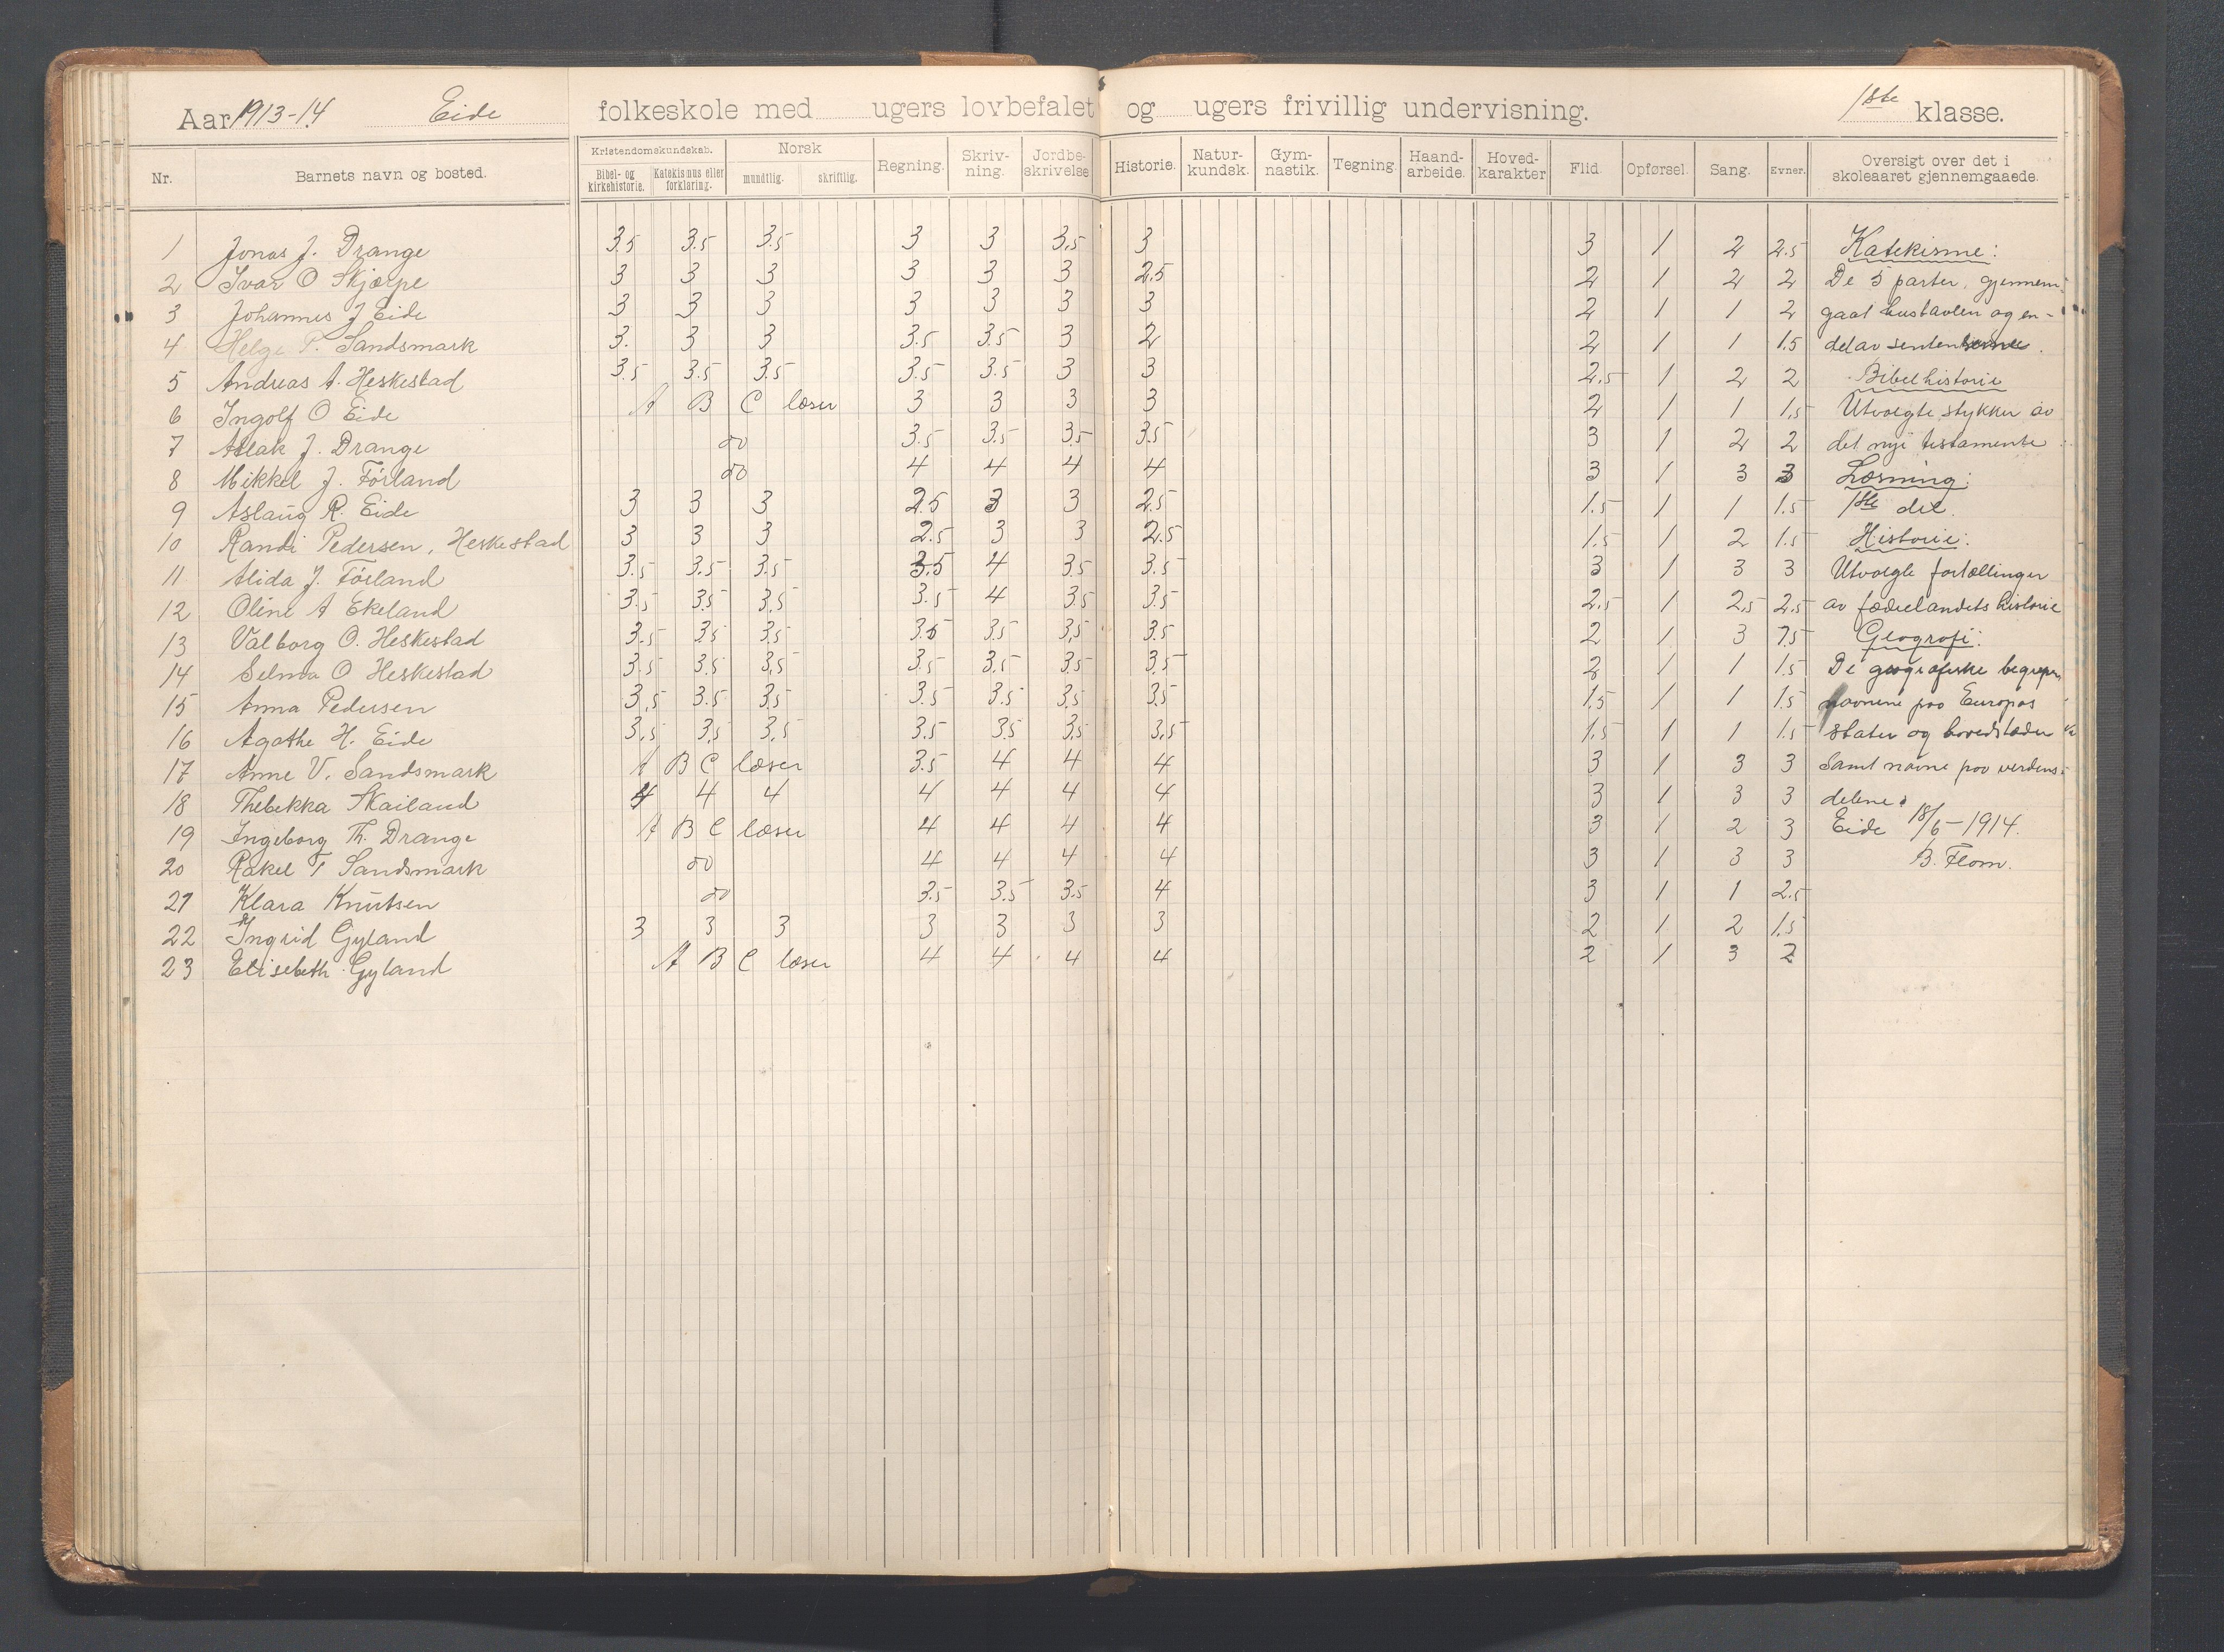 Aar 1913-14 Eide folkeskole med ugers lovbefalet og ugers frivillig undervisning. 1ste klasse.
Nr. Barnets navn og bosted. Kristendomskundskab. Bibel- og kirkehistorie. Katekismus eller forklaring. Norsk mundtlig. skriftlig. Regning. Skriv-ning. Jordbe-skrivelse Historie. Natur-kundsk. Gym-nastik. Tegning. Haand-arbeide. Hoved-karakter Flid. Opførsel. Sang. Evner. Oversigt over det i skoleaaret gjennemgaaede.
1 Jonas J. Drange 3.5 3.5 3.5 3 3 3,5 3 3 1 2 2.5 Katekisme:
2 Ivar O Skjærpe 3 3 3 3 3 3 2,5 2 1 2 2 De 5 parter, gjennem-
3 Johannes J Eide 3 3 3 3 3 3 3 2 1 1 2 gaat hustavlen og en-
4 Helge P. Sandsmark 3. 3 3 3.5 3.5 3 2 2 1 1 1.5 del av
5 Andreas A. Heskestad 3.5 3.5 3.5 3.5 3.5 3 3 2,5 1 2 2 Bibelhistorie
6 Ingolf O Eide A B C læser 3 3 3 3 2 1 1 1,5 Utvalgte stykker av
7 Aslak J. Drange do 3.5 3.5 3.5 3.5 3 1 2 2 det nye testamente
8 Mikkel J. Förland do 4 4 4 4 3 1 3 3 Læsning:
9 Aslaug R. Eide 3 3 3 2.5 3 3 2.5 1.5 1 1 1.5 1ste del.
10 Randi Pedersen, Heskestad 3 3 3 2.5 3 3 2.5 1.5 1 2 1.5 Historie:
11 Alida J. Förland 3.5 3.5 3.5 3.5 4 3.5 3.5 3 1 3 3 Utvalgte fortællinger
12 Oline A Ekeland 3.5 3.5 3,5 3.5 4 3.5 3.5 2,5 1 2,5 2.5 av fædrelandets historie
13 Valborg O. Heskestad 3.5 3.5 3.5 3.5 3.5 3,5 3.5 2 1 3 2.5 Geografi:
14 Selma O Heskestad 3.5 3.5 3,5 3.5 3.5 3.5 3.5 2 1 1 1.5 De geografiske begreper
15 Anna Pedersen 3,5 3.5 3.5 3.5 3.5 3.5 3.5 1.5 1 1 1.5 navnene paa Europas
16 Agathe H. Eide 3,5 3,5 3,5 3.5 3.5 3,5 3,5 1,5 1 1 1.5 stater og hovedstæder
17 Anne V. Sandsmark A B C læser 3.5 4 4 4 3 1 3 3 Samt navne paa verdens-
18 Thebekka Skailand 4 4 4 4 4 4 4 3 1 3 3 delene.
19 Ingeborg Th. Drange A B C læser 4 4 4 4 3 1 2 3 Eide 18/6-1914.
20 Rakel T Sandsmark do 4 4 4 4 3 1 3 3 B. Flom.
21 Klara Knutsen do 3.5 3.5 3.5 4 3 1 1 2.5
22 Ingrid Gyland 3 3 3 3 3 3 3 2 1 2 1,5
23 Elisebeth Gyland A B C læser 4 4 4 4 2 1 3 2